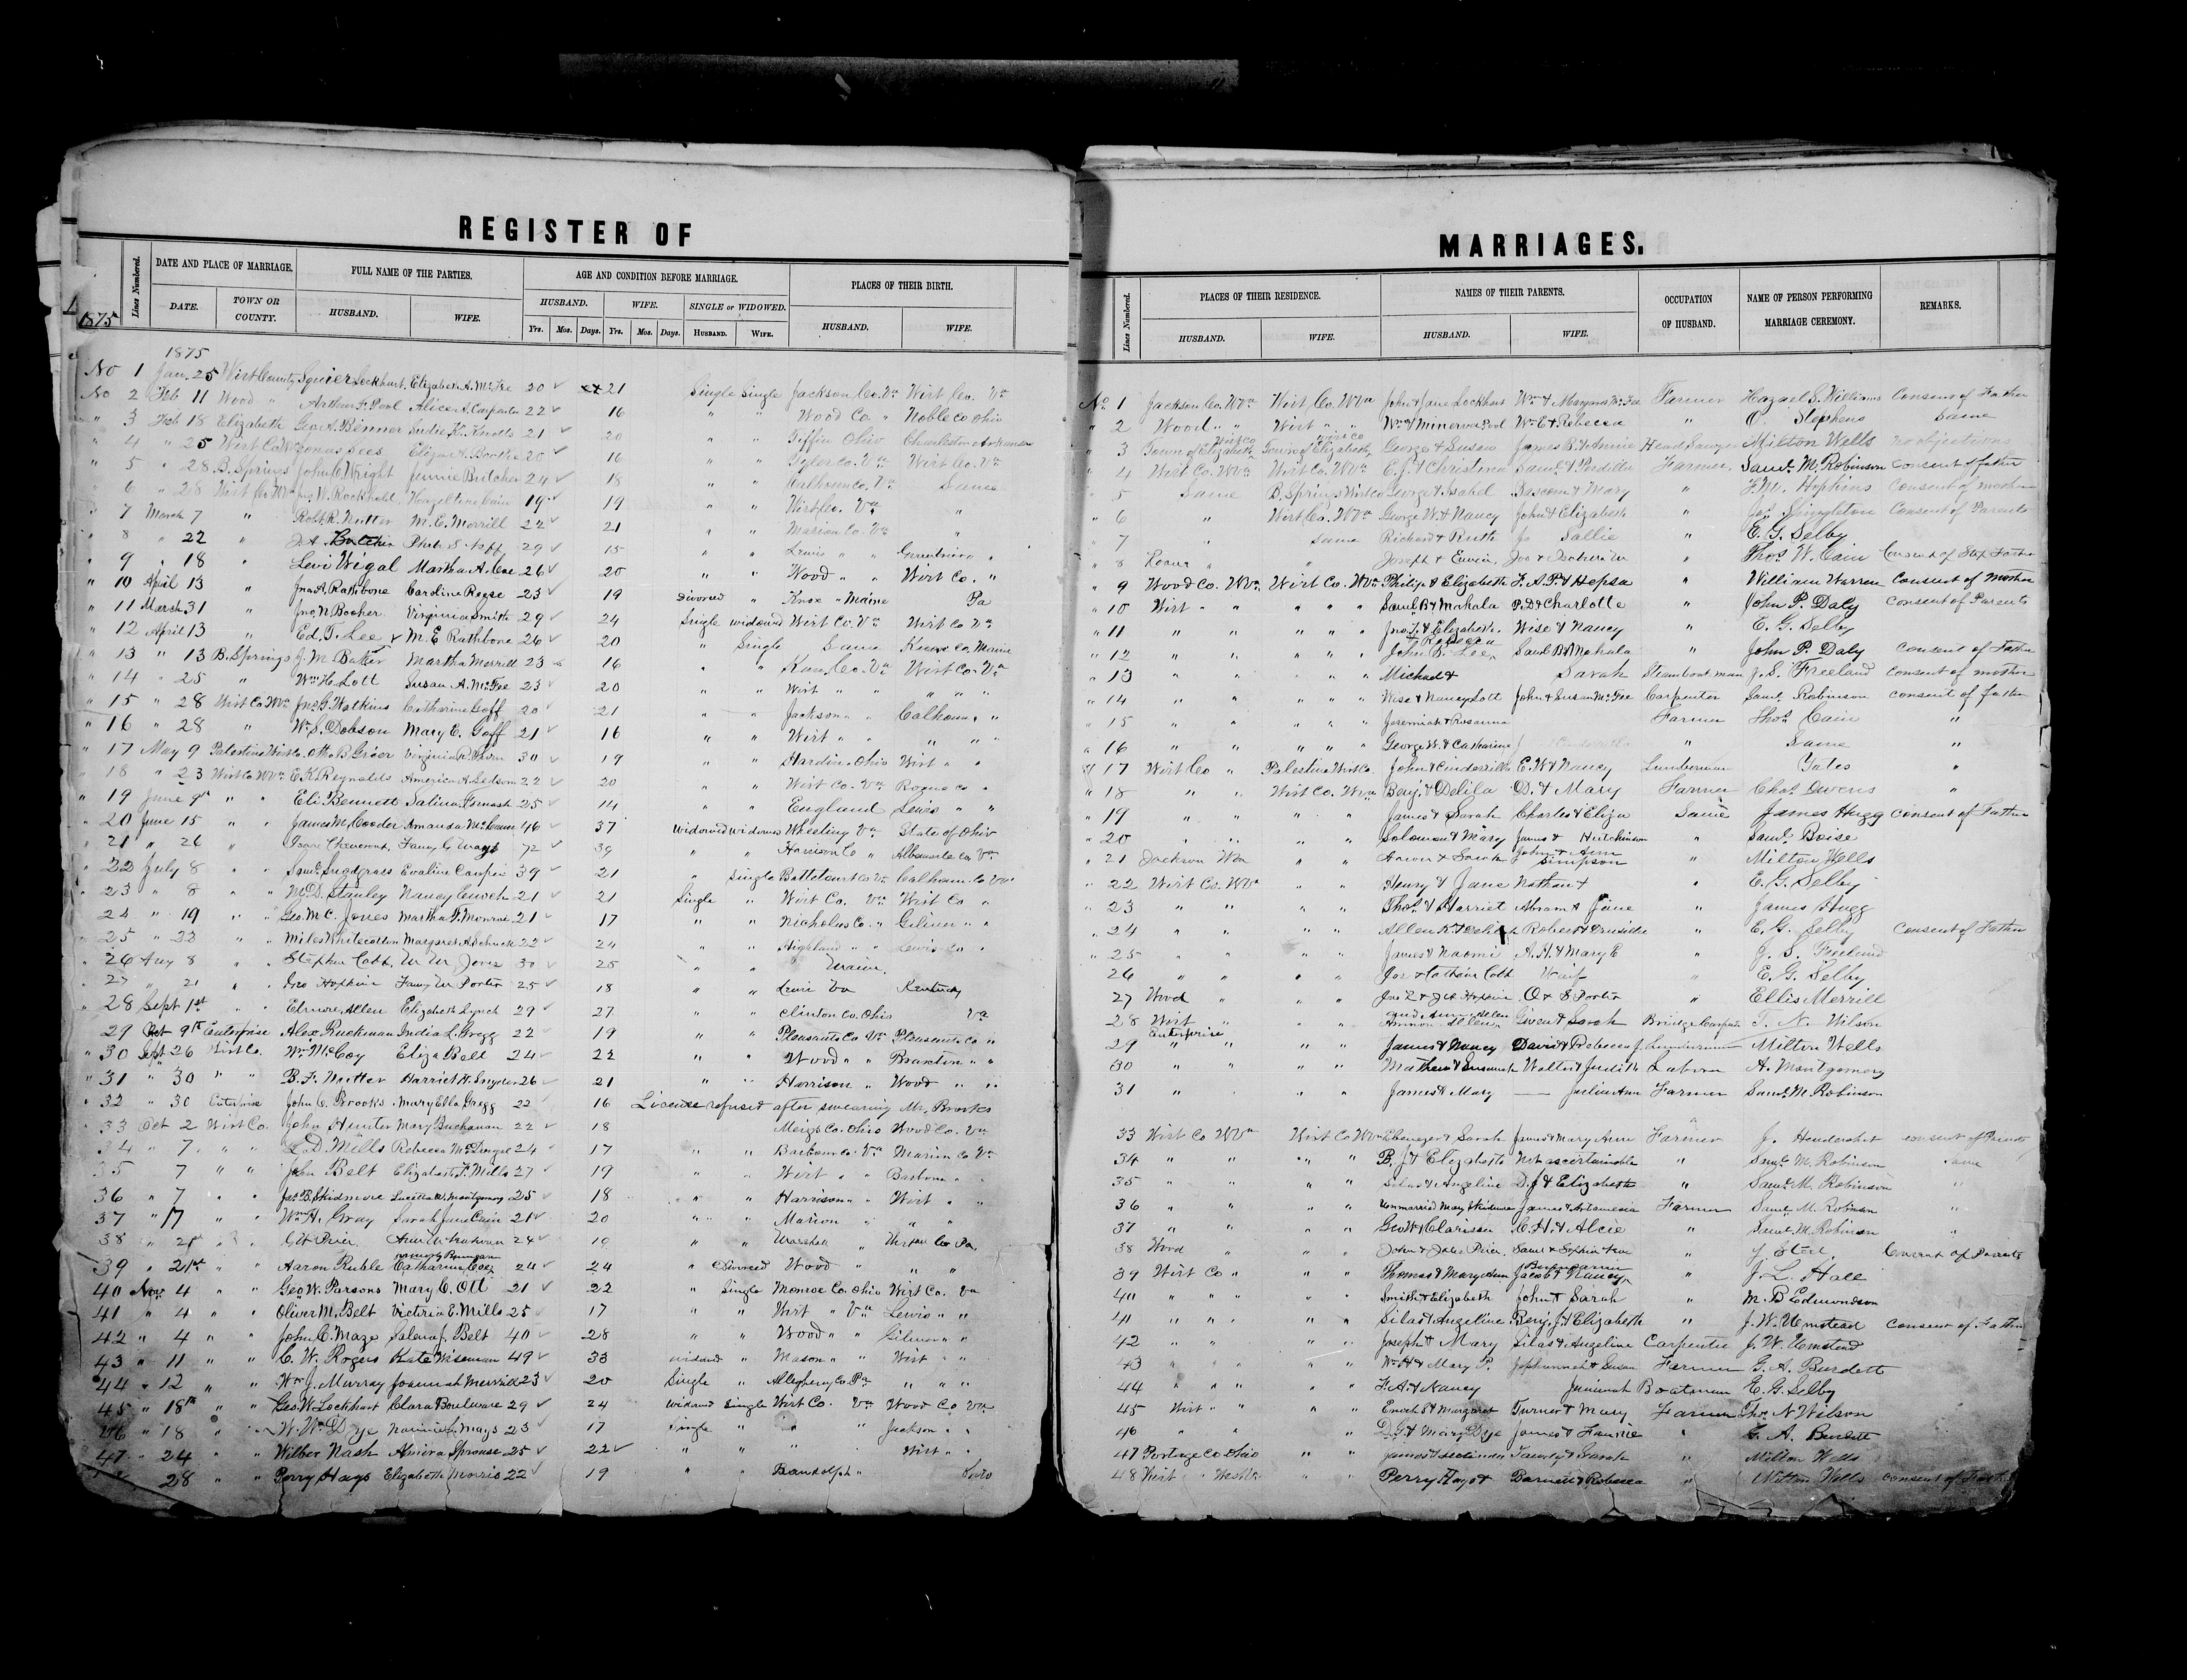 REGISTER OF
Lines Numbered.
DATE AND PLACE OF MARRIAGE.
FULL NAME OF THE PARTIES.
AGE AND CONDITION BEFORE MARRIAGE.
PLACES OF THEIR BIRTH.
DATE.
TOWN OR COUNTY.
HUSBAND.
WIFE.
HUSBAND.
WIFE.
SINGLE or WIDOWED.
HUSBAND.
WIFE.
Yrs. Mos. Days. Yrs. Mos. Days. HUSBAND. WIFE.
1875
1875
No 1 Jan. 25 Wirt County Squier Lockhart Elizabeth A. McFee 20 21 Single Single Jackson Co. Va Wirt Co. Va
No 2 Feb 11 Wood " Arthur F. Pool Alice A. Carpenter 22 16 " " Wood Co " Noble Co Ohio
" 3 Feb 18 Elizabeth Geo A. Binner Sudie K. Knotts 21 20 " " Tiffin Ohio Charleston Arkansas
" 4 " 25 Wirt Co Dees Eliza A. Boothe 20 16 " " Tyler Co. Va Wirt Co. Va
" 5 " 28 B. Springs John C. Wright Jennie Butcher 24 18 " " Calhoun Co. Va Same
" 6 " 28 Wirt Co Wva Jno. W. Rockhold Cain 19 19 " " Wirt Co. Va "
" 7 March 7 " Robt. R. Nutter M. E. Morrill 22 21 " " Marion Co. Va "
" 8 " 22 " Butcher 29 15 " " Lewis " " "
" 9 " 18 " Levi Wigal Martha A. Coe 26 20 " " Wood " " Wirt Co. "
" 10 April 13 " Jno. A. Rathbone Caroline Reese 23 19 Divorced " Knox " Maine Pa
" 11 March 31 " Jno. N. Booher Virginia Smith 29 24 Single widowed Wirt Co. Va Wirt Co Va
" 12 April 13 " Ed. T. Lee M. E. Rathbone 26 20 " Single Same Knox Co. Maine
" 13 " 13 B. Springs J. M. Baker Martha Merrill 23 16 " " Co. Va Wirt Co. Va
" 14 " 25 " Wm H. Lott Susan A. McFee 23 20 " " Wirt " " " " "
" 15 " 28 Wirt Co Wva Jno. G. Watkins Catharine Goff 20 21 " " Jackson " " Calhoun " "
" 16 " 28 " Wm S. Dobson Mary C. Goff 21 16 " " Wirt " " " " "
" 17 May 9 Palestine Wirt Co. Otho B. Grice Virginia R. 30 19 " " Hardin " Ohio Wirt " "
" 18 " 23 Wirt Co Wva E. K. Reynolds America A. Ledsom 22 20 " " Wirt Co. Va Roane Co "
" 19 June 9th " " Eli Bennett Salina 25 14 " " England Lewis " "
" 20 June 15 " " James M. Cooder Amanda McCann 46 37 Widowed widowed Wheeling Va State of Ohio
" 21 " 26 " " Isaac Chevront Fanny G. Mays 72 39 " " Harrison Co " Albemarle Co Va
" 22 July 8 " " Saml. Snodgrass Evaline Carpin 39 21 " Single Bottetourt Co Va Calhoun Co Va
" 23 " 8 " " M. D. Stanley Nancy Enoch 21 21 Single " Wirt Co. Va Wirt Co "
" 24 " 19 " " Geo. M. C. Jones Martha F. Monroe 21 17 " " Nicholas Co. " Gilmer " "
" 25 " 22 " " Miles Whitecotton Margaret A. Schuck 22 24 " " Highland " " Lewis Co "
" 26 Aug 8 " " Stephen Cobb M. M. Jones 30 25 " " Maine
" 27 " 21 " " Jno Hopkins Fanny M Porter 25 18 " " Lewis Va Kentucky
" 28 Sept 1st " " Elmore Allen Elizabeth Lynch 29 27 " " Clinton Co. Ohio Va
29 Oct 9th Enterprise Alex. Ruckman India L. Gregg 22 19 " " Pleasants Co Va Pleasants Co "
" 30 Sept 26 Wirt Co. Wm McCoy Eliza Belt 24 22 " " Wood " " Braxton " "
" 31 " 30 " " B. F. Nutter Harriet H. Snyder 26 21 " " Harrison " Wood " "
" 32 " 30 Enterprise John C. Brooks Mary Ella Gregg 22 16 License refused after swearing Mr. Brooks
" 33 Oct 2 Wirt Co. John Hunter Mary Buchanan 22 18 Meigs Co. Ohio Wood Co. Va
34 " 7 " " L. D. Mills Rebecca McDougal 24 17 " " Barbour Co. Va Marion Co Va
35 7 " " John Belt Elizabeth F. Mills 27 19 " " Wirt " " Barbour " "
36 " 7 " " Jas. B. Skidmore Lucetta W. Montgomery 25 18 " " Harrison " " Wirt " "
37 " 17 " " Wm H. Gray Sarah Jane Cain 21 20 " " Marion " " "
38 " 21st " " G W Prier 24 19 " " Marshall " Co Pa.
39 " 21st " " Aaron Ruble Catharine Coe 24 24 " Divorced Wood " " "
40 Nov. 4 " " Geo. W. Parsons Mary C. Ott 21 22 " Single Monroe Co. Ohio Wirt Co. Va
41 " 4 " " Oliver M. Belt Victoria E. Mills 25 17 " " Wirt " Va Lewis " "
42 " 4 " " John C. Maze Salena J. Belt 40 28 " " Wood " " Gilmer " "
43 " 11 " " C. W. Rogers Kate Wiseman 49 33 widowed " Mason " " Wirt " "
44 " 12 " " Wm J. Murray Joannah Merrill 23 20 Single " Allegheny Co. Pa " " "
45 " 18th " " Geo. W. Lockhart Clara Boulware 29 24 widowed Single Wirt Co. Va Wood Co Va
46 " 18 " " W. Wm Dye Nannie L. Mays 23 17 Single " " " Jackson " "
47 " 24 " " Wilber Nash Almira Sprouse 25 22 " " " Wirt " "
28 " " Perry Hays Elizabeth Morris 22 19 " " Randolph "
MARRIAGES.
Lines Numbered.
PLACES OF THEIR RESIDENCE.
NAMES OF THEIR PARENTS.
OCCUPATION OF HUSBAND.
NAME OF PERSON PERFORMING MARRIAGE CEREMONY.
REMARKS.
HUSBAND.
WIFE.
HUSBAND.
WIFE.
No. 1 Jackson Co. Wva Wirt Co. Wva John & Jane Lockhart Wm & Margaret McFee Farmer Hazael S. Williams Consent of Father
" 2 Wood " " Wirt " " Wm & Minerva Pool Wm E & Rebecca " O. Stephens Same
" 3 Town of Elizabeth Wirt Co Town of Elizabeth Wirt Co George & Susan James B. & Annie Head Sawyer Milton Wells no objections
" 4 Wirt Co. Wva Wirt Co. Wva E. J. & Christina Saml. & Perdilla Farmer Saml. M. Robinson consent of father
" 5 Same B. Springs Wirt Co George & Isabel Bascom & Mary " F. M. Hopkins consent of mother
" 6 " Wirt Co. Wva George W. & Nancy John & Elizabeth " Jas. Singleton Consent of Parents
" 7 " Same Richard & Ruth Jo Sallie " E. G. Selby
" 8 Roane " " Joseph & " Thos. W. Cain Consent of Step Father
" 9 Wood Co. Wva Wirt Co. Wva Philip & Elizabeth F. A. P. & Hepsa " William Warren consent of mother
" 10 Wirt " " " " " Saml. B & Mahala P. D & Charlotte " John P. Daly consent of Parents
" 11 " " " " " Jno. & Elizabeth Wise & Nancy " E. G. Selby
" 12 " " " " " John B. & Rebecca Lee Saml B & Mahala " John P. Daly consent of Father
" 13 " " " " " Michael & Sarah Steamboat man J. S. Freeland consent of mother
" 14 " " " " " Wise & Nancy Lott John & Susan McFee Carpenter Saml. Robinson consent of father
" 15 " " " " " Jeremiah & Rosanna Farmer Thos. Cain "
" 16 " " " " " George W. & Catharine " Same "
" 17 Wirt Co " Palestine Wirt Co. John & Cinderrilla E. W & Nancy Lumberman Yates "
" 18 " " Wirt Co. Wva Benj. & Delila D. & Mary Farmer Chas. Owens "
" 19 " " " " James & Sarah Charles & Eliza Same James Hugg consent of Father
" 20 " " " " Soloman & Mary James & Hutchinson " Saml. Boise
" 21 Jackson Wva " " Aaron & Sarah John & Ann Simpson " Milton Wells
" 22 Wirt Co. Wva " " Henry & Jane Nathan & " E. G. Selby
" 23 " " " " Thos. & Harriet Abram & Jane " James Hugg
" 24 " " " " Allen K. & Robert & Drusilla " E. G. Selby consent of Father
" 25 " " " " James & Naomi A. H. & Mary E " J. S. Freeland
26 " " " " Jos & Cobb " E. G. Selby
27 Wood " " " Hopkins O & S Porter " Ellis Merrill
28 Wirt " " " Ammon and Ann Allen Given & Sarah Bridge Carpenter T. N. Wilson
29 Enterprise " " " " James & Nancy David & Rebecca J. Lumberman Milton Wells
30 " " " " Mathew & Susannah Walter & Judith Laborer A. Montgomery
31 " " " " James & Mary — Julia Ann Farmer Saml. M. Robinson
33 Wirt Co Wva Wirt Co Wva Ebenezer & Sarah James & Mary Ann Farmer J. Hendershot consent of Parents
34 " " " " B. J & Elizabeth Not ascertainable " Saml. M. Robinson Same
35 " " " " Silas & Angeline D. J & Elizabeth Saml. M. Robinson "
36 " " " " Unmarried Mary Skidmore James & Artamesia Farmer Saml. M. Robinson "
37 " " " " Geo W & Clarissa C. H. & Alcie " Saml. M. Robinson "
38 Wood " " John & Prier Saml & Sophia " Consent of Parents
39 Wirt Co " " " Thomas & Mary Ann Jacob & Nancy " J. L. Hall
40 " " " " Smith & Elizabeth John & Sarah " M. B Edmondson
41 " " " " Silas & Angeline Benj. J. & Elizabeth " J. W. Umstead consent of Father
42 " " " " Joseph & Mary Silas & Angeline Carpenter J. W. Umstead
43 " " " " Wm H & Mary P. & Susan Farmer G. A. Burdett
44 " " " " F. A. & Nancy Jemimah Boatman E. G. Selby
45 Wirt " " " " Enoch S & Margaret Turner & Mary Farmer Thos. N Wilson
46 " " " D. G. & Mary Dye James & Fannie " G. A. Burdett
47 Portage Co Ohio " " James & & Sarah Milton Wells
48 Wirt " West Va " " Perry Hays & Barnes & Rebecca " Milton Wells consent of Father